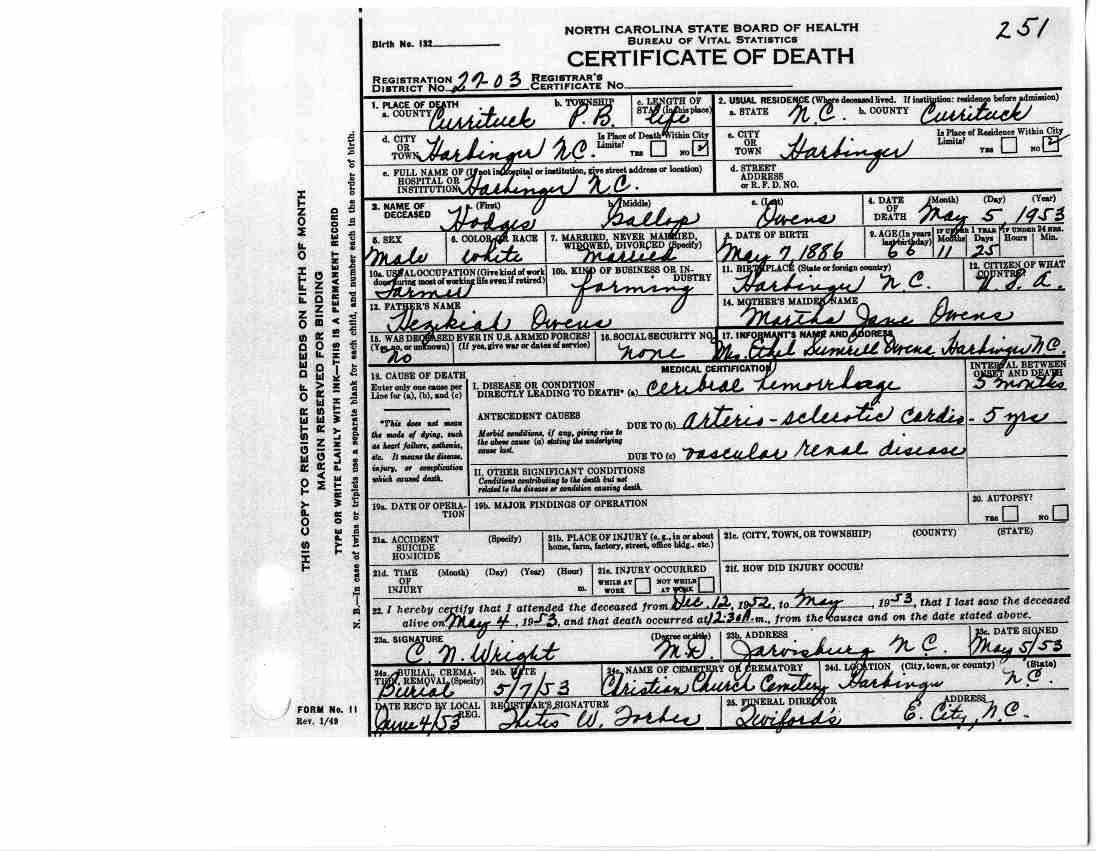 251
NORTH CAROLINA STATE BOARD OF HEALTH
BUREAU OF VITAL STATISTICS
CERTIFICATE OF DEATH
Birth No. 132
REGISTRATION DISTRICT No. 27-03 REGISTRAR'S CERTIFICATE No.
1. PLACE OF DEATH
a. COUNTY Currituck
b. TOWNSHIP P.B.
c. LENGTH OF STAY (In this place) life
2. USUAL RESIDENCE (Where deceased lived. If institution: residence before admission)
a. STATE N.C. b. COUNTY Currituck
d. CITY OR TOWN Harbinger N.C.
Is Place of Death Within City Limits? YES NO ✓
c. CITY OR TOWN Harbinger
Is Place of Residence Within City Limits? YES NO ✓
e. FULL NAME OF (If not in hospital or institution, give street address or location)
HOSPITAL OR INSTITUTION Harbinger N.C.
d. STREET ADDRESS or R. F. D. NO.
3. NAME OF DECEASED
a. (First) Hodges
b. (Middle) Gallop
c. (Last) Owens
4. DATE OF DEATH (Month) (Day) (Year) May 5, 1953
5. SEX Male
6. COLOR OR RACE White
7. MARRIED, NEVER MARRIED, WIDOWED, DIVORCED (Specify) Married
8. DATE OF BIRTH May 7, 1886
9. AGE (In years last birthday) 66
IF UNDER 1 YEAR Months 11 Days 25
IF UNDER 24 HRS. Hours Min.
10a. USUAL OCCUPATION (Give kind of work done during most of working life even if retired) Farmer
10b. KIND OF BUSINESS OR INDUSTRY farming
11. BIRTHPLACE (State or foreign country) Harbinger N.C.
12. CITIZEN OF WHAT COUNTRY? U.S.A.
13. FATHER'S NAME Hezikiah Owens
14. MOTHER'S MAIDEN NAME Martha Jane Owens
15. WAS DECEASED EVER IN U.S. ARMED FORCES? (Yes, no, or unknown) (If yes, give war or dates of service) no
16. SOCIAL SECURITY NO. none
17. INFORMANT'S NAME AND ADDRESS Mrs. Ethel Sumrell Owens, Harbinger N.C.
MEDICAL CERTIFICATION
INTERVAL BETWEEN ONSET AND DEATH
18. CAUSE OF DEATH
Enter only one cause per Line for (a), (b), and (c)
I. DISEASE OR CONDITION DIRECTLY LEADING TO DEATH* (a) Ceribral hemorrhoage 5 months
*This does not mean the mode of dying, such as heart failure, asthenia, etc. It means the disease, injury, or complication which caused death.
ANTECEDENT CAUSES
Morbid conditions, if any, giving rise to the above cause (a) stating the underlying cause last.
DUE TO (b) arterio-sclerotic cardio- 5 yrs
DUE TO (c) vascular renal disease
II. OTHER SIGNIFICANT CONDITIONS
Conditions contributing to the death but not related to the disease or condition causing death.
19a. DATE OF OPERATION
19b. MAJOR FINDINGS OF OPERATION
20. AUTOPSY? YES NO
21a. ACCIDENT SUICIDE HOMICIDE (Specify)
21b. PLACE OF INJURY (e. g., in or about home, farm, factory, street, office bldg., etc.)
21c. (CITY, TOWN, OR TOWNSHIP) (COUNTY) (STATE)
21d. TIME OF INJURY (Month) (Day) (Year) (Hour) m.
21e. INJURY OCCURRED WHILE AT WORK NOT WHILE AT WORK
21f. HOW DID INJURY OCCUR?
22. I hereby certify that I attended the deceased from Dec. 12, 1952, to May, 1953, that I last saw the deceased
alive on May 4, 1953, and that death occurred at 12:30A.m., from the causes and on the date stated above.
23a. SIGNATURE C. N. Wright (Degree or title) M.D.
23b. ADDRESS Jarvisburg N.C.
23c. DATE SIGNED May 5/53
24a. BURIAL, CREMATION, REMOVAL (Specify) Burial
24b. DATE 5/7/53
24c. NAME OF CEMETERY OR CREMATORY Christian Church Cemetery
24d. LOCATION (City, town, or county) (State) Harbinger N.C.
DATE REC'D BY LOCAL REG. June 4/53
REGISTRAR'S SIGNATURE W. Forbes
25. FUNERAL DIRECTOR Twiford's
ADDRESS E. City, N.C.
FORM No. 11
Rev. 1/49
THIS COPY TO REGISTER OF DEEDS ON FIFTH OF MONTH
MARGIN RESERVED FOR BINDING
TYPE OR WRITE PLAINLY WITH INK—THIS IS A PERMANENT RECORD
N. B.—In case of twins or triplets use a separate blank for each child, and number each in the order of birth.